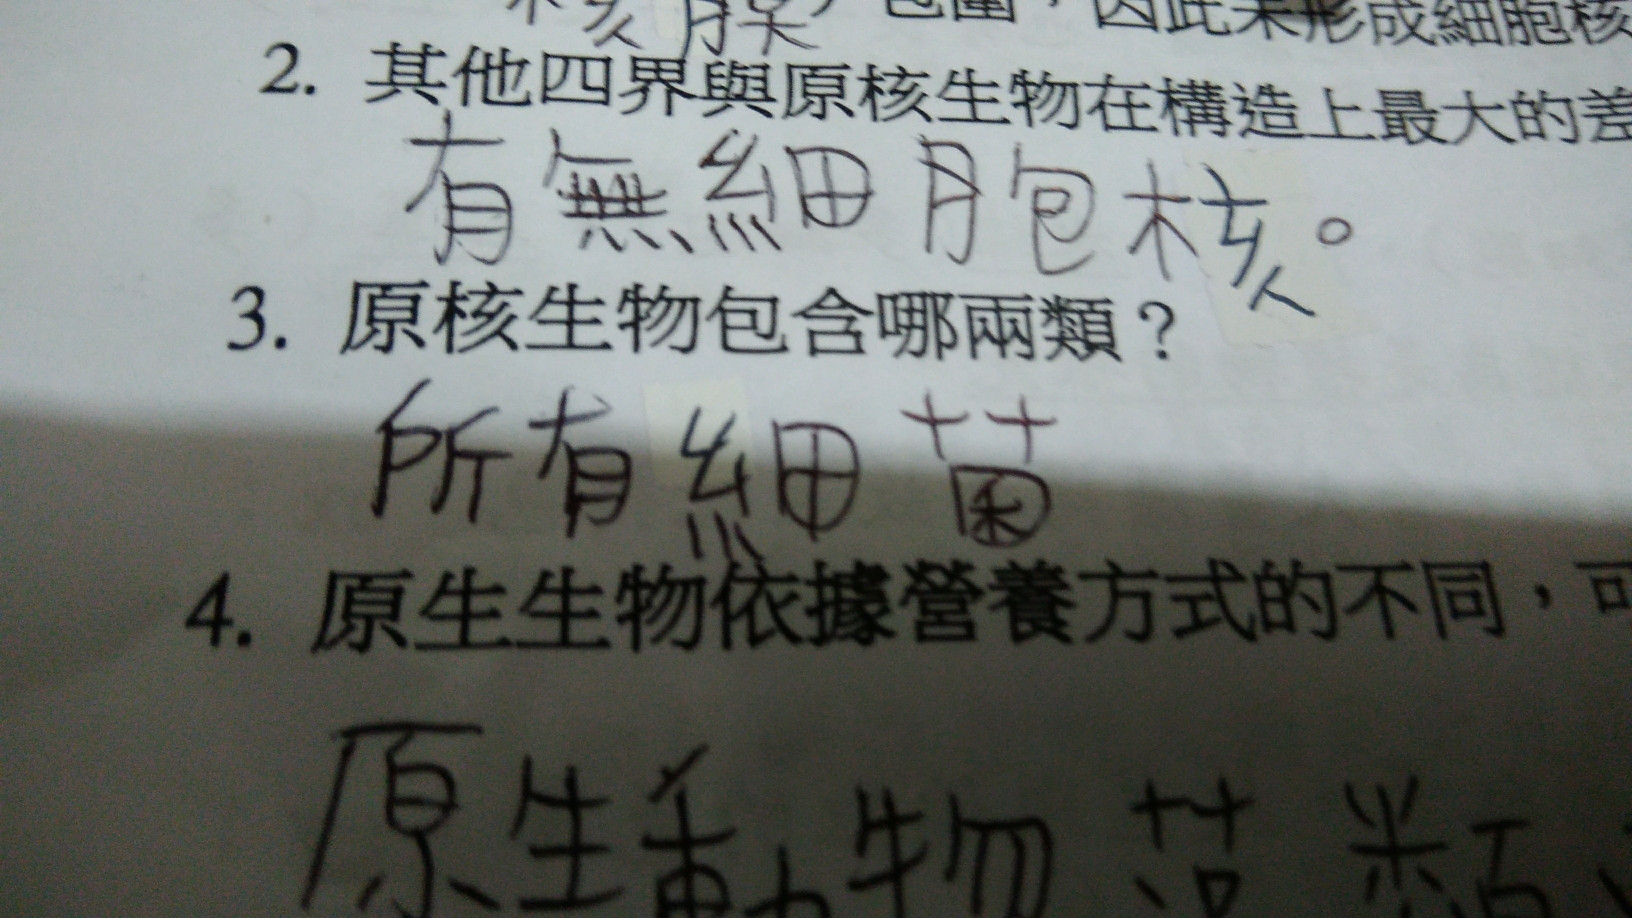 核膜，包圍，因此未形成細胞核
2. 其他四界與原核生物在構造上最大的差
有無細胞核。
3. 原核生物包含哪兩類？
所有細菌
4. 原生生物依據營養方式的不同，可
原生動物 類